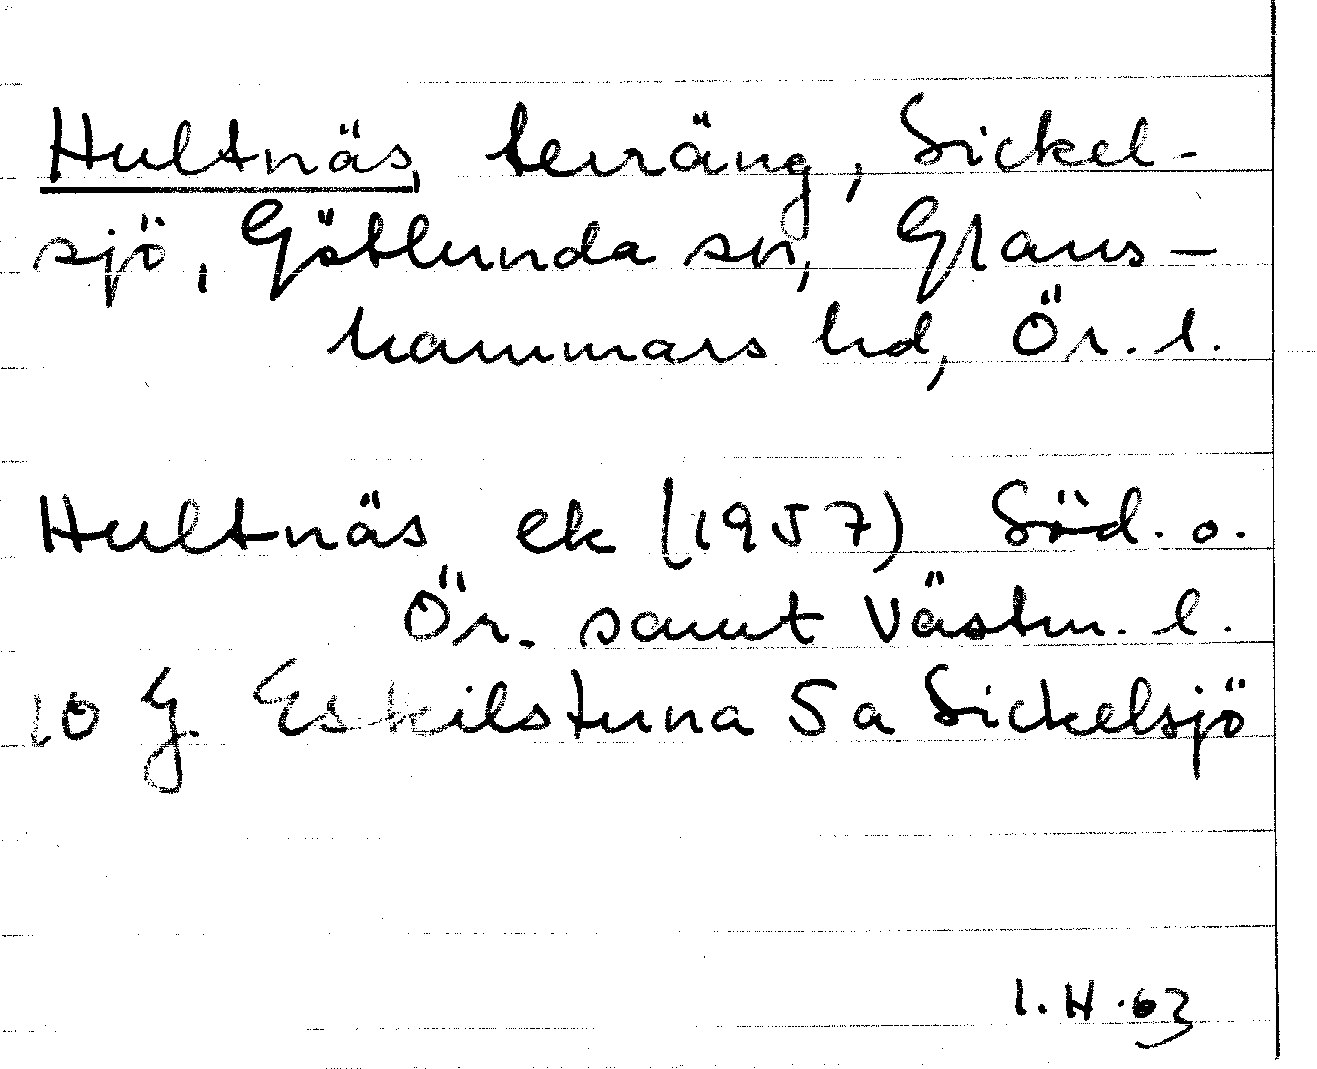 Hultnäs, terräng, Sickel-
sjö, Götlunda sn, Glans-
hammars hd, Ör. l.
Hultnäs ek (1957) Söd. o.
Ör. samt Västm. l.
10 G. Eskilstuna 5a Sickelsjö
I. H. 63